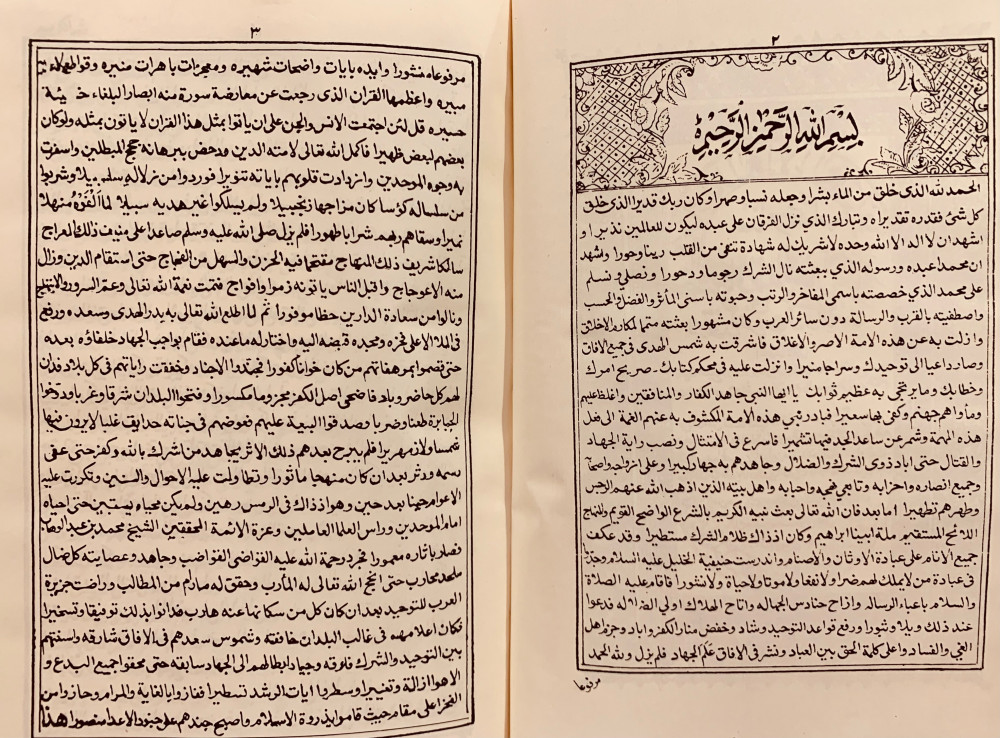 ٢
بسم الله الرحمن الرحيم
الحمد لله الذى خلق من الماء بشرا وجعله نسبا وصهرا وكان ربك قديرا الذى خلق
كل شئ فقدره تقديراه وتبارك الذي نزل الفرقان على عبده ليكون للعالمين نذيرا و
اشهدان لا اله الا الله وحده لاشريك له شهادة تنفى من القلب رينا وحورا واشهد
ان محمدا عبده ورسوله الذي ببعثته نال الشرك رجوما ودحورا ونصلى ونسلم
على محمد الذي خصصته باسمى المفاخر والرتب وحبوته باسنى المأثر والفضل والحسب
واصطفيته بالقرب والرسالة دون سائر العرب وكان مشهورا بعثته متمما لمكارم الاخلاق
وازلت به عن هذه الامة الاصر والاغلاق فاشرقت به شمس الهدى فى جميع الافاق
وصار داعيا الى توحيدك وسراجا منيرا وانزلت عليه فى محكم كتابك صريح امرك
وخطابك وما يرتجى به عظيم ثوابك يا ايها النبى جاهد الكفار والمنافقين واغلظ عليهم
ومأواهم جهنم وكفى بها سعيرا فبادر نبي هذه الامة المكشوف به عنهم الغمة الى فعل
هذه المهمة وشمر عن ساعد الجد فيها تشميرا فاسرع فى الامتثال ونصب راية الجهاد
والقتال حتى اباد ذوى الشرك والضلال وجاهدهم به جهادا كبيرا وعلى ازواجه واصحابه
وجميع انصاره واحزابه وتابعى نهجه واحبابه واهل بيته الذين اذهب الله عنهم الرجس
وطهرهم تطهيرا اما بعد فان الله تعالى بعث نبيه الكريم بالشرع الواضح القويم والمنهاج
اللائح المستقيم ملة ابينا ابراهيم وكان اذ ذاك ظلام الشرك مستطيرا وقد عكف
جميع الانام على عبادة الاوثان والاصنام واندرست حنيفية الخليل عليه السلام وجدّوا
فى عبادة من لا يملك لهم ضرا ولا نفعا ولا موتا ولا حياة ولا نشورا فاقام عليه الصلاة
والسلام باعباء الرساله وازاح حنادس الجهاله واتاح الهلاك اولي الضلاله فدعوا
عند ذلك ويلا وثبورا ورفع قواعد التوحيد وشاد وخفض منار الكفر واباد وحزم اهل
الغى والفساد واعلى كلمة الحق بين العباد ونشر فى الافاق علم الجهاد فلم يزل ولله الحمد
مرفوعا
٣
مرفوعاه منشورا وايده بايات واضحات شهيره ومعجزات باهرات منيره وقواطع
مبيره واعظمها القران الذى رجعت عن معارضة سورة منه ابصار البلغاء خ‍ـيئة
حسيره قل لئن اجتمعت الانس والجن على ان ياتوا بمثل هذا القران لا ياتون بمثله ولوكان
بعضهم لبعض ظهيرا فاكمل الله تعالى لامته الدين ودحض ببرهانه حجج المبطلين واسفرت
به وجوه الموحدين وازدادت قلوبهم باياته تنويرا فوردوا من زلاله سلسبيلا وشربوا
من سلساله كؤسا كان مزاجها زنجبيلا ولم يسلكوا غير هديه سبيلا لما الفوه منهلا
نميرا وسقاهم ربهم شرابا طهورا فلم يزل صلى الله عليه وسلم صاعدا على منيف ذلك المعراج
سالكا شريف ذلك المنهاج مقتحما فيه الحزن والسهل من الفجاج حتى استقام الدين وزال
منه الاعوجاج واقبل الناس ياتونه زمرا وافواج فتمت نعمة الله تعالى وعم السرور والابتهاج
ونالوا من سعادة الدارين حظا موفورا ثم لما اطلع الله تعالى به بدر الهدى وسعده ورفع
فى الملا الاعلى فخره ومجده قبضه اليه واختار له ما عنده فقام بواجب الجهاد خلفاؤه بعده
حتى قصموا بمرهفاتهم من كان خوانا كفورا فجندوا الاجناد وخفقت راياتهم فى كل بلاد فدان
لهم كل حاضر وباد فاضحى اصل الكفر مجزوما مكسورا وفتحوا البلدان شرقا وغربا ودوخوا
الجبابرة طعنا وضربا وصدقوا البيعة عليهم فعوضهم فى جناته حدايق غلبا لا يرون فيها
شمسا ولا زمهريرا فلم يبرح بعدهم ذلك الاثر يجاهد من اشرك بالله وكفر حتى عفى
رسمه ودثر بعد ان كان منهجا ماثورا وتطاولت عليه الاحوال والسنين وتكررت عليه
الاعوام حينا بعد حين وهو اذ ذاك فى الرمس رهين ولم يكن محياه يستبين حتى احياه
امام الموحدين وراس العلما العاملين وعزة الائمة المحققين الشيخ محمد بن عبد الوهاب
فصار باثاره معمورا فجرد رحمة الله عليه القواضى القواضب وجاهد وعصابته كل ضال
ملحد محارب حتى انجح الله تعالى له المأرب وحقق له ما رام من المطالب وراضت جزيرة
العرب للتوحيد بعد ان كان كل من سكانها عنه هارب فدانوا بذلك توفيقا وتسخيرا
فكان اعلامهم فى غالب البلدان خافقة وشموس سعدهم فى الافاق شارقه واسنتهم
بين التوحيد والشرك فارقه وجياد ابطالهم الى الجهاد سابقه حتى محقوا جميع البدع و
الاهوا ازالة وتغييرا وسطروا ايات الرشد تسطيرا ففازوا بالغاية والمرام وحازوا من
الفخر اعلى مقام حيث قاموا بذروة الاسلام واصبح جندهم على جنود الاعدا منصورا هذا